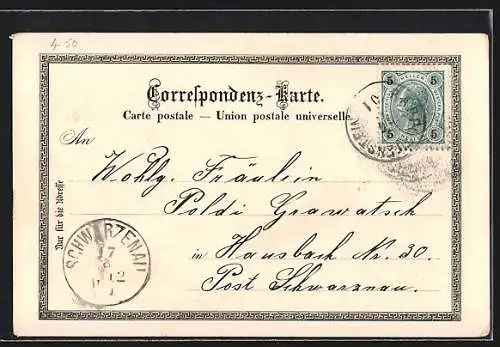 4-50
Correspondenz-Karte.
Carte postale — Union postale universelle
5 5
5 5
An
Nur für die Adresse
Wohlg. Fräulein
Poldi Grawatsch
in Hausbach Nr. 30.
Post Schwarznau.
SCHWARZENAU
17
8
12
1